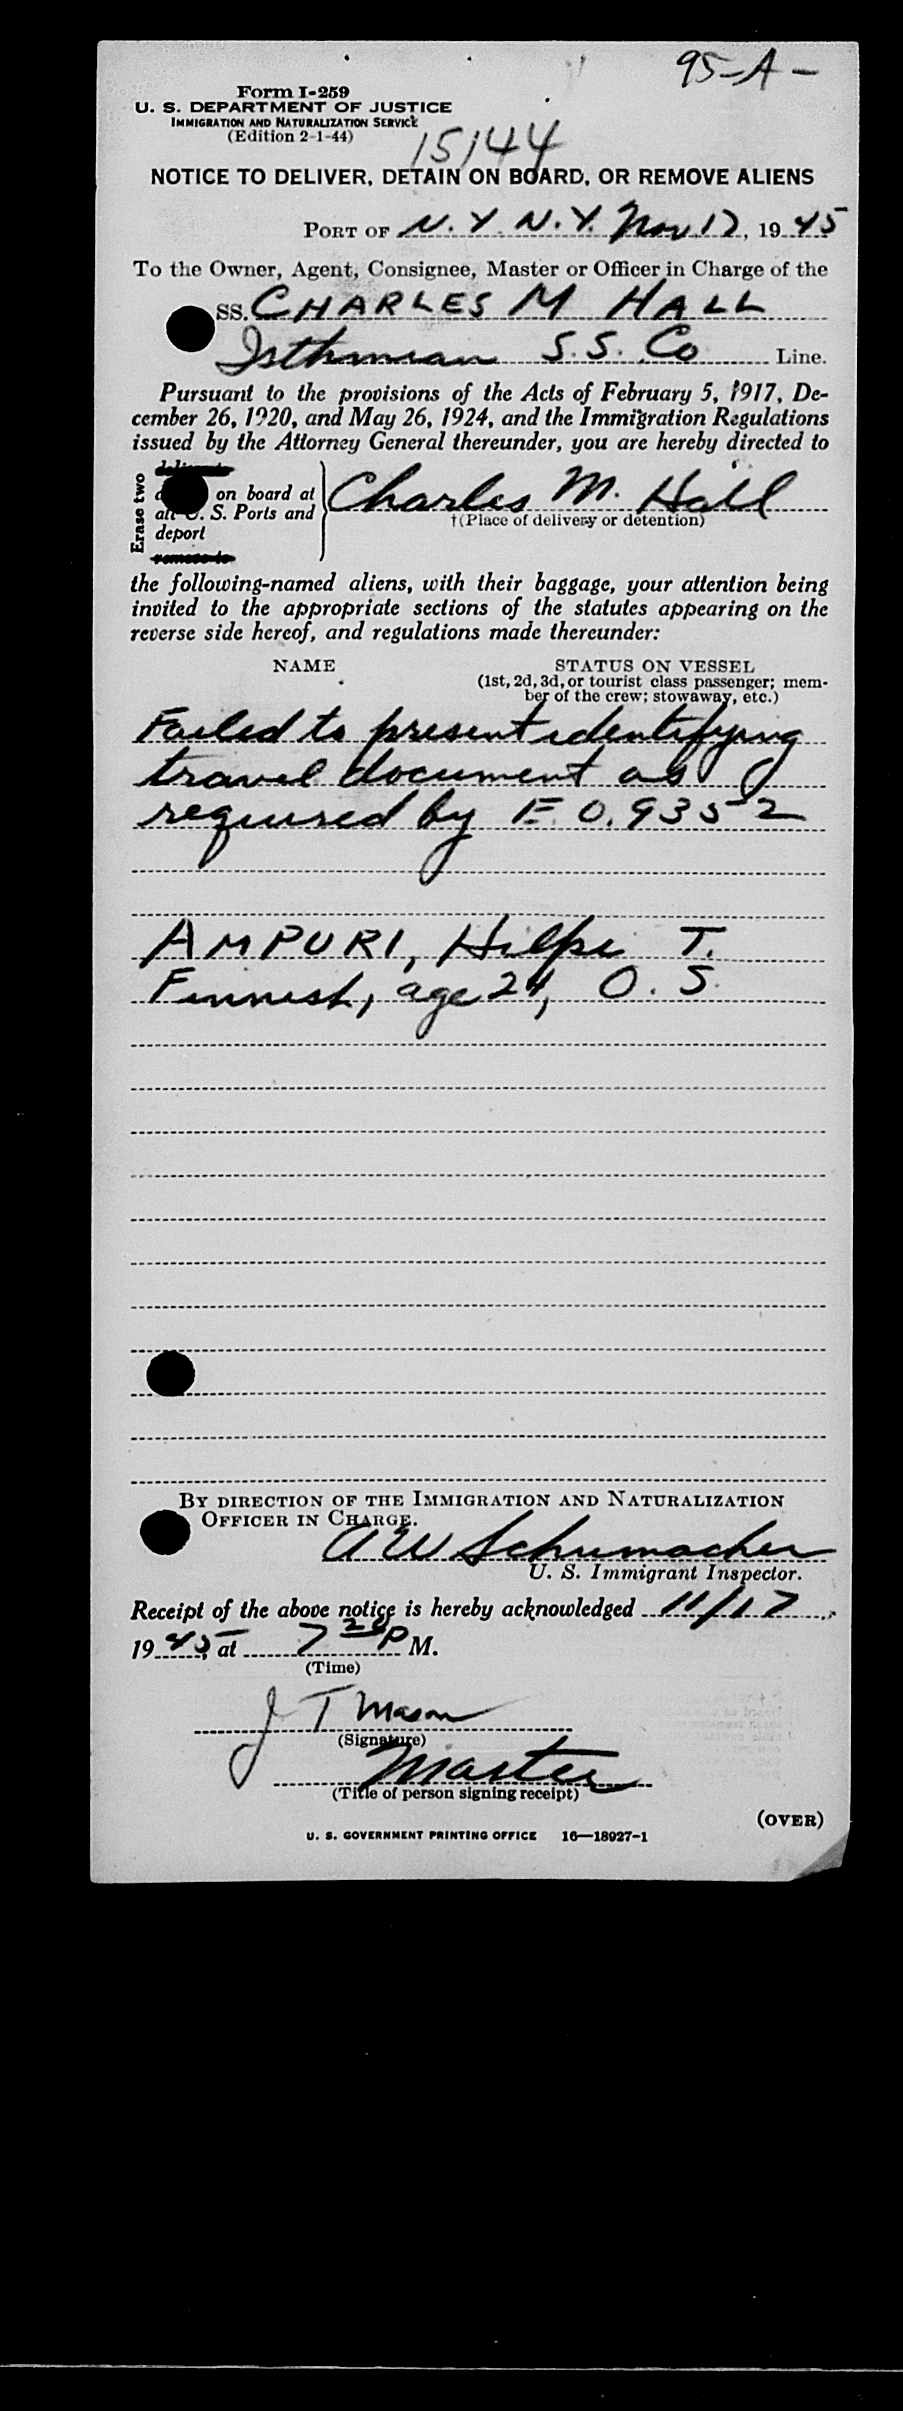 95-A-
Form I-259
U. S. DEPARTMENT OF JUSTICE
IMMIGRATION AND NATURALIZATION SERVICE
(Edition 2-1-44)
15144
NOTICE TO DELIVER, DETAIN ON BOARD, OR REMOVE ALIENS
PORT OF N. Y. N. Y. Nov 17, 1945
To the Owner, Agent, Consignee, Master or Officer in Charge of the
SS. CHARLES M HALL
Isthmian S.S. Co Line.
Pursuant to the provisions of the Acts of February 5, 1917, De-
cember 26, 1920, and May 26, 1924, and the Immigration Regulations
issued by the Attorney General thereunder, you are hereby directed to
Erase two
on board at
all U. S. Ports and
deport
Charles M. Hall
†(Place of delivery or detention)
the following-named aliens, with their baggage, your attention being
invited to the appropriate sections of the statutes appearing on the
reverse side hereof, and regulations made thereunder:
NAME STATUS ON VESSEL
(1st, 2d, 3d, or tourist class passenger; mem-
ber of the crew; stowaway, etc.)
Failed to present identifying
travel document as
required by E.O. 9352
AMPURI, Hilpi T.
Finnish, age 24, O. S.
BY DIRECTION OF THE IMMIGRATION AND NATURALIZATION
OFFICER IN CHARGE.
A W Schumacher
U. S. Immigrant Inspector.
Receipt of the above notice is hereby acknowledged 11/17,
1945, at 7 20 P M.
(Time)
J T Mason
(Signature)
Master
(Title of person signing receipt)
(OVER)
U. S. GOVERNMENT PRINTING OFFICE 16—18927-1